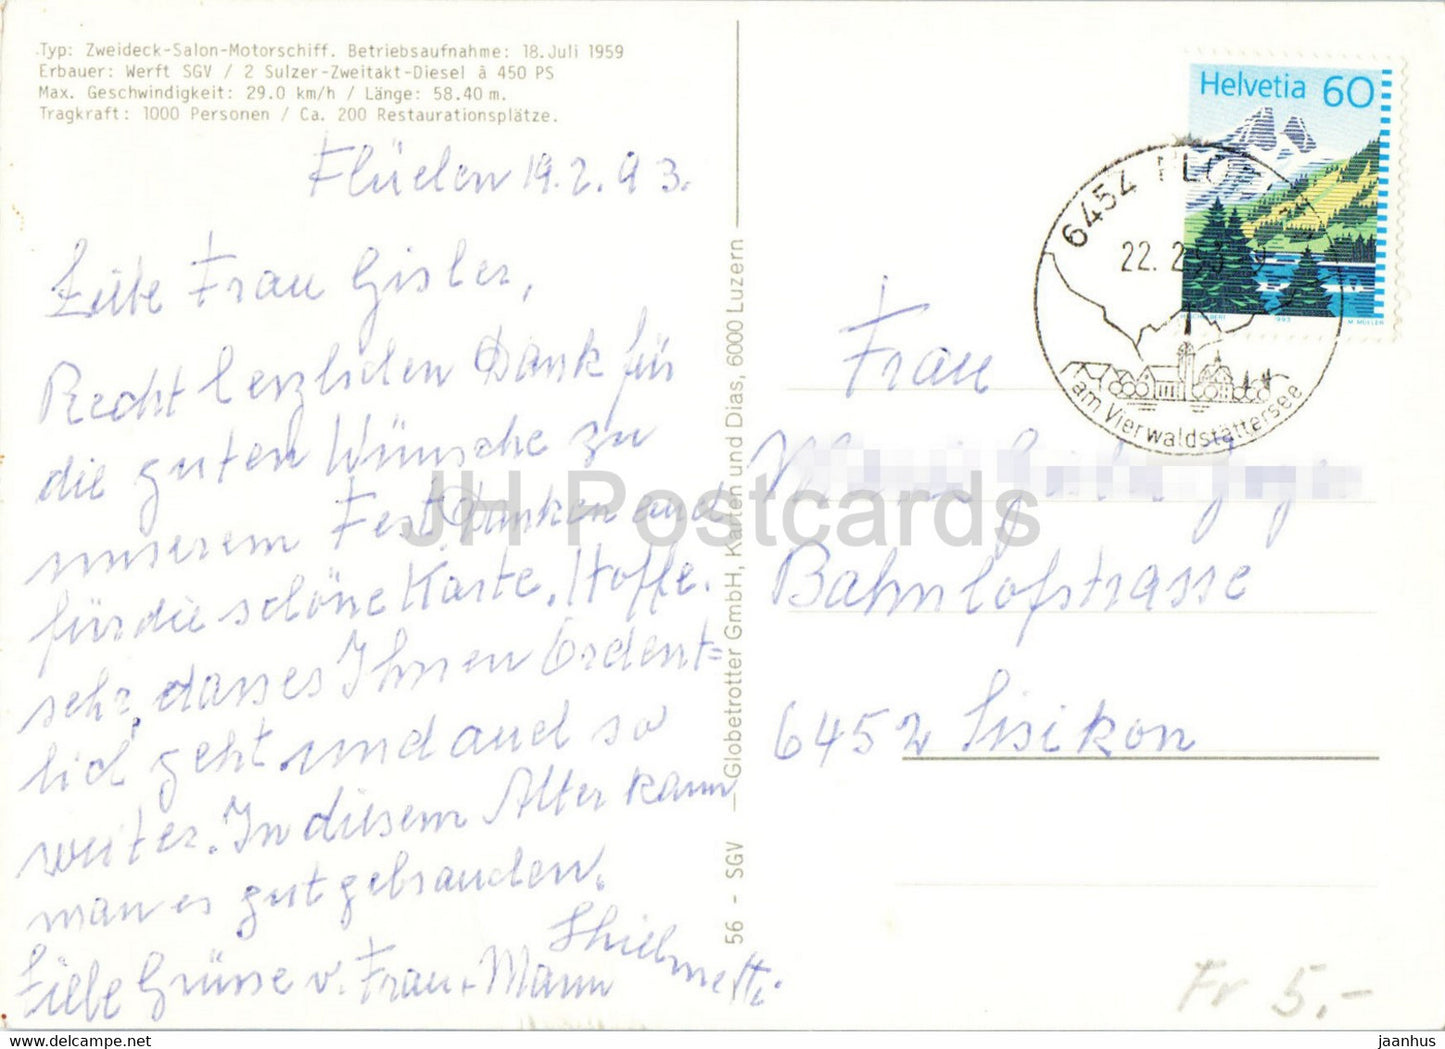 Typ: Zweideck-Salon-Motorschiff. Betriebsaufnahme: 18.Juli 1959
Erbauer: Werft SGV / 2 Sulzer-Zweitakt-Diesel à 450 PS
Max. Geschwindigkeit: 29.0 km/h / Länge: 58.40 m.
Tragkraft: 1000 Personen / Ca. 200 Restaurationsplätze.
Flüelen 19.2.93.
Liebe Frau Gisler,
Recht herzlichen Dank für
die guten Wünsche zu
unserem Fest. Danken auch
für die schöne Karte. Hoffe.
sehr, dass es Ihnen Ordent=
lich geht und auch so
weiter. In diesem Alter kann
man es gut gebrauchen.
Liebe Grüsse v. Frau + Mann
56 - SGV Globetrotter GmbH, Karten und Dias, 6000 Luzern
Helvetia 60
6454
22. 2. 93
am Vierwaldstättersee
Frau
Bahnhofstrasse
6452 Sisikon
Fr 5.-
JH Postcards
jaanhus